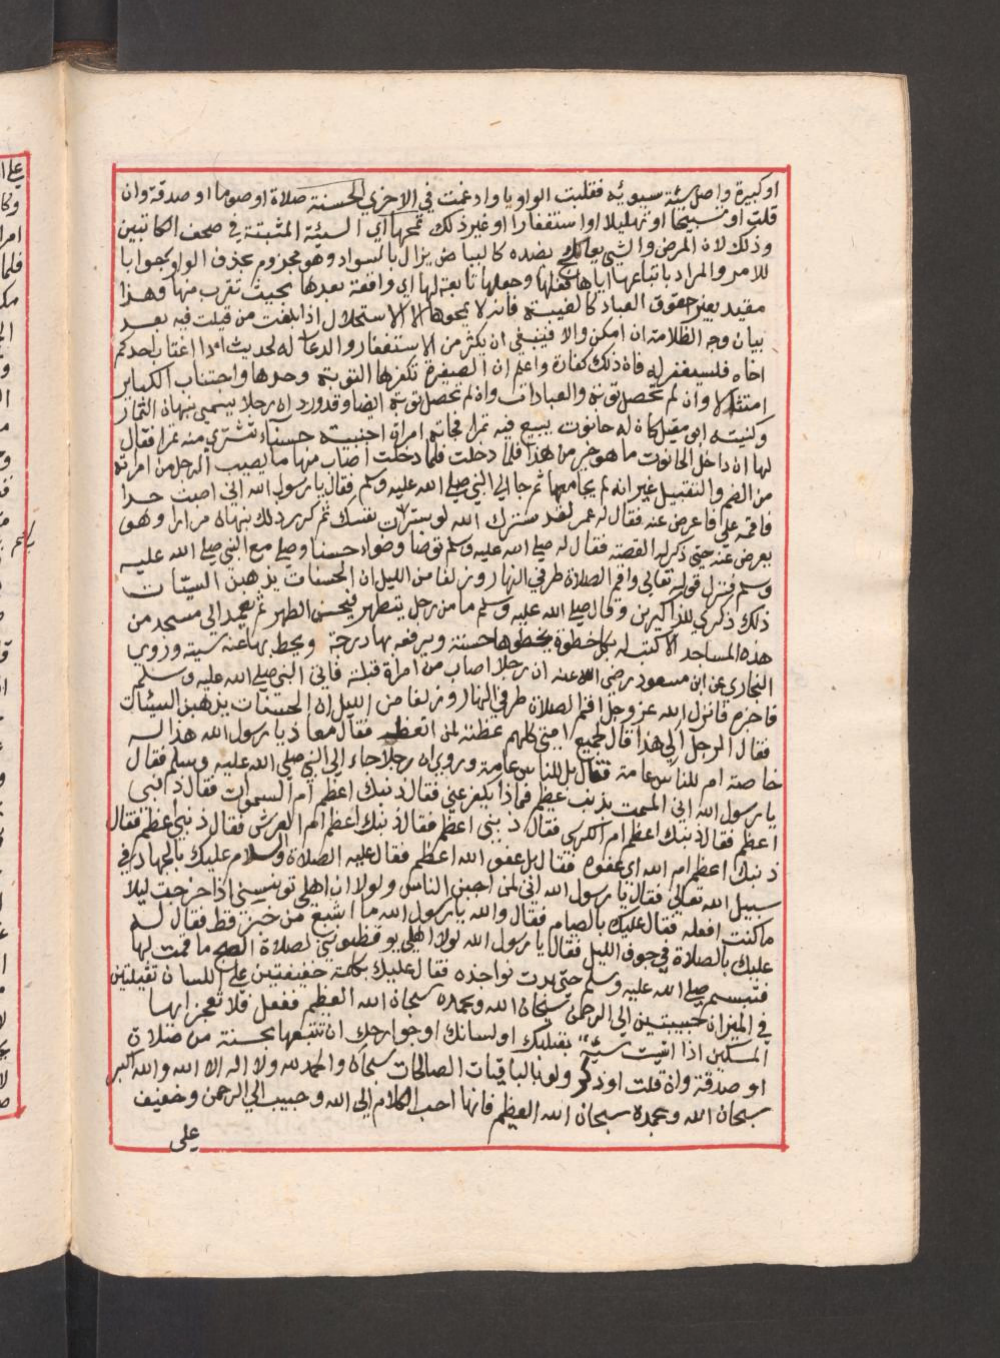 او كبيرة واصل سيئة سيوئة فقلبت الواو يا وادغمت في الاخري الحسنة صلاة او صوما او صدقة وان
قلت او تسبيحا او تهليلا او استغفارا او غير ذلك تمحها اي السيئة المثبتة في صحف الكاتبين
وذلك لان المرض والشي يعالج بضده كالبياض يزال بالسواد وهو مجزوم بحذف الواو جوابا
للامر والمراد باتباعها اياها فعلها وجعلها تابعة لها اي واقعة بعدها بحيث تقرب منها وهذا
مقيد بغير حقوق العباد كالغيبة فانه لا يمحوها الا الاستحلال اذا بلغت من قيلت فيه بعد
بيان وجه الظلامة ان امكن والا فينبغي ان يكثر من الاستغفار والدعا له لحديث اذا اغتاب احدكم
اخاه فليستغفر له فان ذلك كفارة واعلم ان الصغيرة تكفرها التوبة وحدها واجتناب الكباير
امتثالا وان لم تحصل توبة والعبادات وان لم تحصل توبة ايضا وقد ورد ان رجلا يسمي بنهان التمار
وكنيته ابو مقبل كان له حانوت يبيع فيه تمرا فجاته امراة اجنبية حسناء تشتري منه تمرا فقال
لها ان داخل الحانوت ما هو خير من هذا فلما دخلت فلما دخلت اصاب منها ما يصيب الرجل من امرته
من الضم والتقبيل غير انه لم يجامعها ثم جا الي النبي صلي الله عليه وسلم فقال يا رسول الله اني اصبت حدا
فاقمه علي فاعرض عنه فقال له عمر لقد سترك الله لو سترت نفسك ثم كرر ذلك بنهان مرارا وهو
يعرض عنه حتي ذكر له القصة فقال له صلي الله عليه وسلم توضا وضوا حسنا وصلي مع النبي صلي الله عليه
وسلم فنزل قوله تعالي واقم الصلاة طرفي النهار وزلفا من الليل ان الحسنات يذهبن السيئات
ذلك ذكري للذاكرين وقال صلي الله عليه وسلم ما من رجل يتطهر فيحسن الطهر ثم يعمد الي مسجد من
هذه المساجد الا كتب له بكل خطوة يخطوها حسنة ويرفعه بها درجة ويحط بها عنه سيئة وروي
البخاري عن ابن مسعود رضي الله عنه ان رجلا اصاب من امراة قبلة فاتي النبي صلي الله عليه وسلم
فاخبره فانزل الله عز وجل اقم الصلاة طرفي النهار وزلفا من الليل ان الحسنات يذهبن السيئات
فقال الرجل الي هذا قال لجميع امتي كلهم عظة لمن اتعظ فقال معاذ يا رسول الله هذا له
خاصة ام للناس عامة فقال بل للناس عامة وروي ان رجلا جاء الي النبي صلي الله عليه وسلم فقال
يا رسول الله اني الممت بذنب عظيم فماذا يكفر عني فقال ذنبك اعظم ام السموات فقال ذنبي
اعظم فقال ذنبك اعظم ام الكرسي فقال ذنبي اعظم فقال ذنبك اعظم ام العرش فقال ذنبي اعظم فقال
ذنبك اعظم ام الله اي عفوه فقال بل عفو الله اعظم فقال عليه الصلاة والسلام عليك بالجهاد في
سبيل الله تعالي فقال يا رسول الله اني لمن اجبن الناس ولولا ان اهلي تونسني اذا خرجت ليلا
ما كنت افعله فقال عليك بالصيام فقال والله يا رسول الله ما اشبع من خبز قط فقال له
عليك بالصلاة في جوف الليل فقال يا رسول الله لولا اهلي يوقظوني لصلاة الصبح ما قمت لها
فتبسم صلي الله عليه وسلم حتي بدت نواجذه فقال عليك بكلمتين خفيفتين علي اللسان ثقيلتين
في الميزان حبيبتين الي الرحمن سبحان الله وبحمده سبحان الله العظيم ففعل فلا تعجز ايها
المسكين اذا اتيت سيئة بقلبك او لسانك او جوارحك ان تتبعها بحسنة من صلاة
او صدقة وان قلت او ذكر ولو بالباقيات الصالحات سبحان والحمد لله ولا اله الا الله والله اكبر
سبحان الله وبحمده سبحان الله العظيم فانها احب الكلام الي الله وحبيب الي الرحمن وخفيف
علي